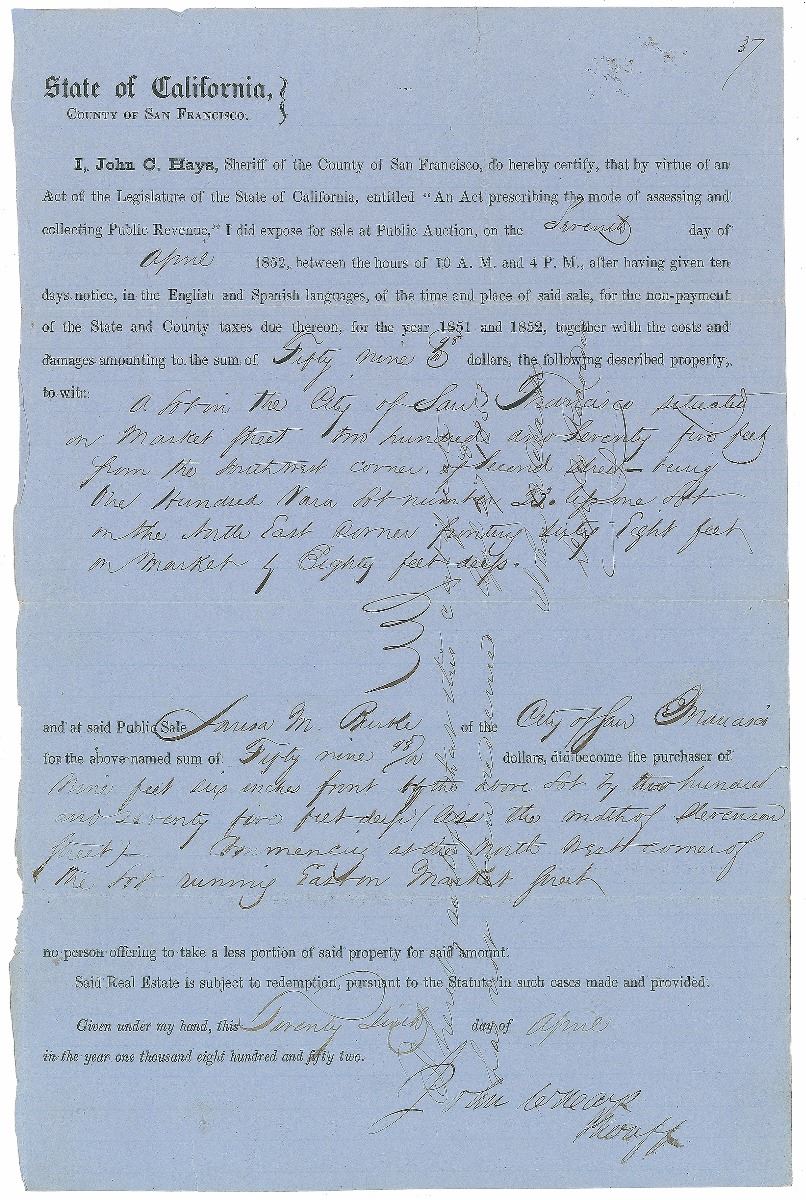 37
State of California,
County of San Francisco.
I, John C. Hays, Sheriff of the County of San Francisco, do hereby certify, that by virtue of an
Act of the Legislature of the State of California, entitled "An Act prescribing the mode of assessing and
collecting Public Revenue," I did expose for sale at Public Auction, on the Seventh day of
April 1852, between the hours of 10 A. M. and 4 P. M., after having given ten
days notice, in the English and Spanish languages, of the time and place of said sale, for the non-payment
of the State and County taxes due thereon, for the year 1851 and 1852, together with the costs and
damages amounting to the sum of Fifty nine dollars, the following described property,
to wit:
A Lot in the City of San Francisco situated
on Market Street two hundred and Seventy five feet
from the Southwest corner of Second Street being
One Hundred Vara Lot number
on the North East Corner fronting Sixty Eight feet
on Market by Eighty feet deep.
and at said Public Sale M. Burke of the City of San Francisco
for the above named sum of Fifty nine 98/100 dollars, did become the purchaser of
Nine feet six inches front by the above Lot by two hundred
and Seventy five feet deep ( the width of Stevenson
Street) Commencing at the North West corner of
the Lot running East on Market Street
no person offering to take a less portion of said property for said amount.
Said Real Estate is subject to redemption, pursuant to the Statute in such cases made and provided.
Given under my hand, this Twenty day of April
in the year one thousand eight hundred and fifty two.
John C Hays
Sheriff